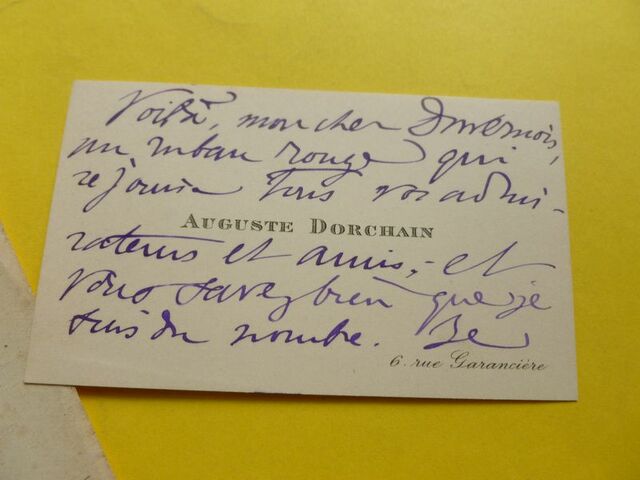 Voilà, mon cher Duvernois,
un ruban rouge qui
réjouira tous vos admi-
AUGUSTE DORCHAIN
rateurs et amis, - et
vous savez bien que je
suis du nombre. Je
6. rue Garancière